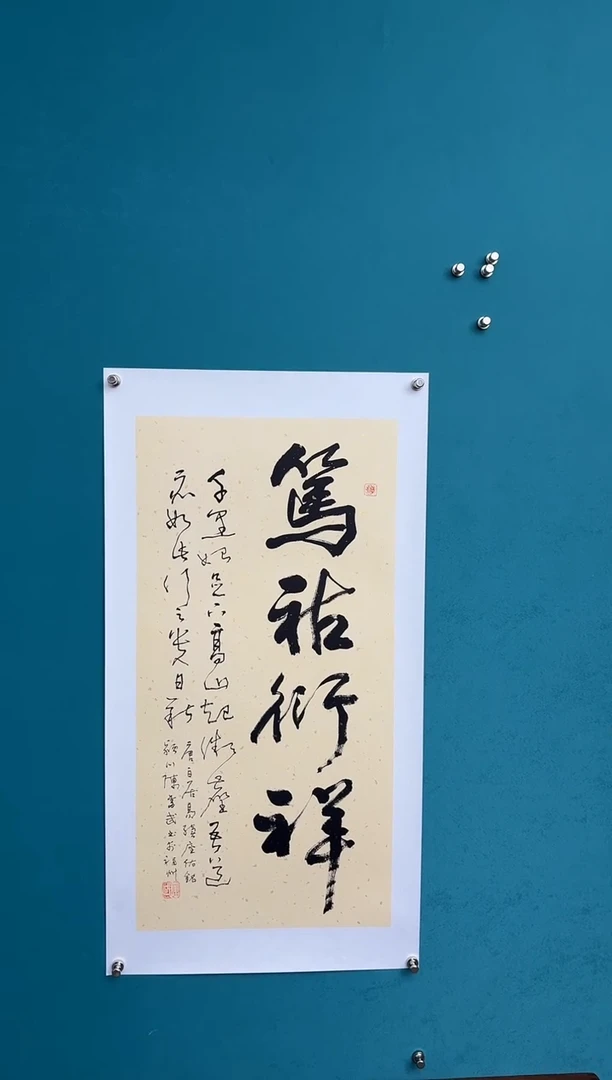 篤祜衍祥
千里始足下高山起微塵吾道
亦如此行之貴日新
唐白居易續座佑銘
陳